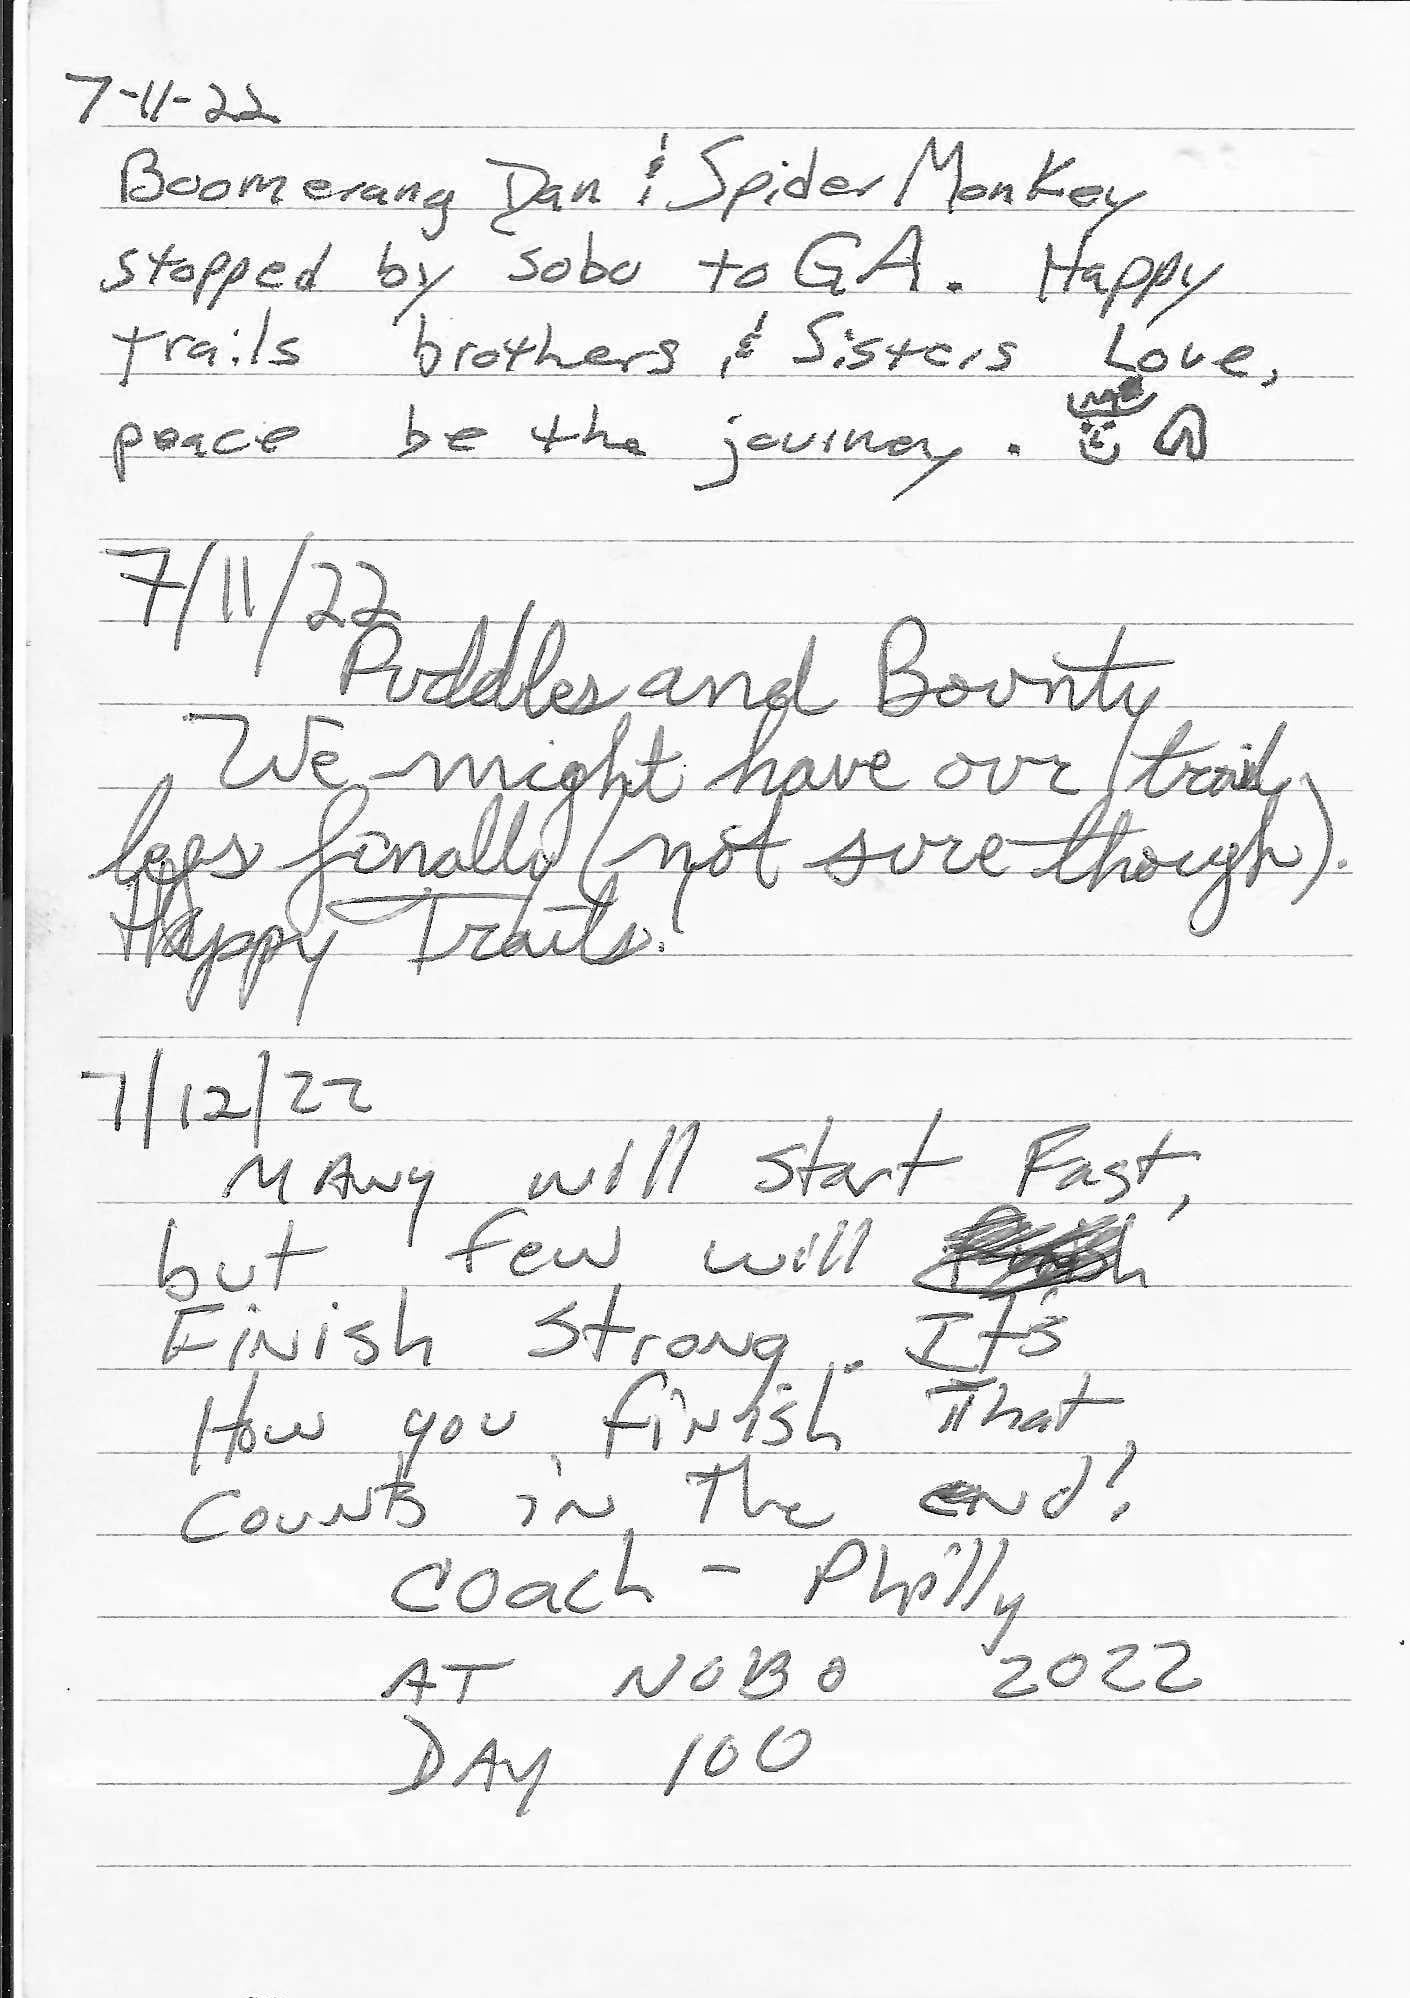 7-11-22
Boomerang Dan & Spider Monkey
stopped by sobo to GA. Happy
trails brothers & Sisters Love,
peace be the journey.
7/11/22
Puddles and Bounty
We might have our trail
legs finally (not sure though).
Happy Trails.
7/12/22
MANy will start Fast,
but few will
Finish strong. It's
How you finish That
Counts in The end!
Coach - Philly
AT NOBO 2022
DAy 100